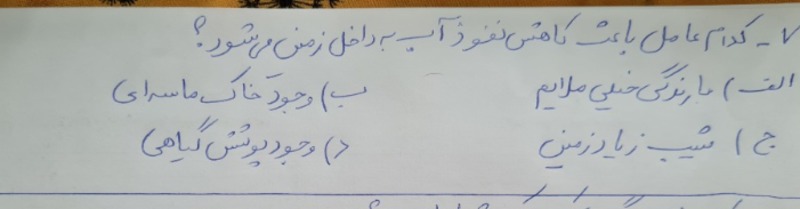 ۷- کدام عامل باعث کاهش نفوذ آب به داخل زمین می‌شود؟
الف) بارندگی خیلی ملایم ب) وجود خاک ماسه‌ای
ج) شیب زیاد زمین د) وجود پوشش گیاهی